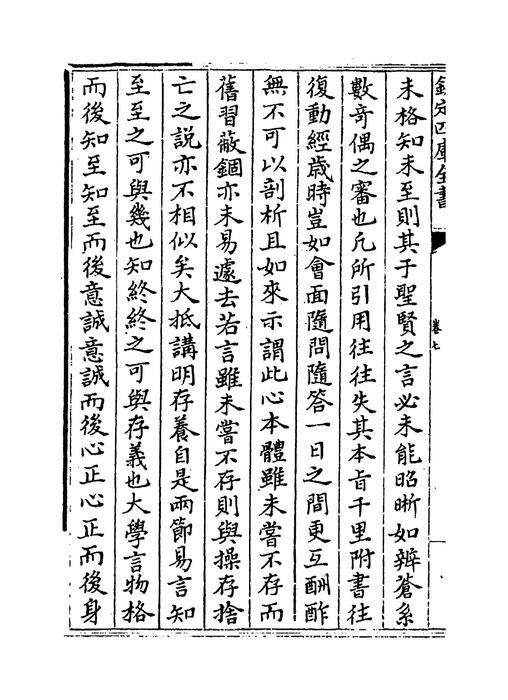 欽定四庫全書
卷七
未格知未至則其于聖賢之言必未能昭晰如辨蒼素
數奇偶之審也凡所引用往往失其本旨千里附書往
復動經歳時豈如會面隨問隨答一日之間更互酬酢
無不可以剖析且如來示謂此心本體雖未嘗不存而
舊習蔽錮亦未易遽去若言雖未嘗不存則與操存捨
亡之說亦不相似矣大抵講明存養自是兩節易言知
至至之可與幾也知終終之可與存義也大學言物格
而後知至知至而後意誠意誠而後心正心正而後身